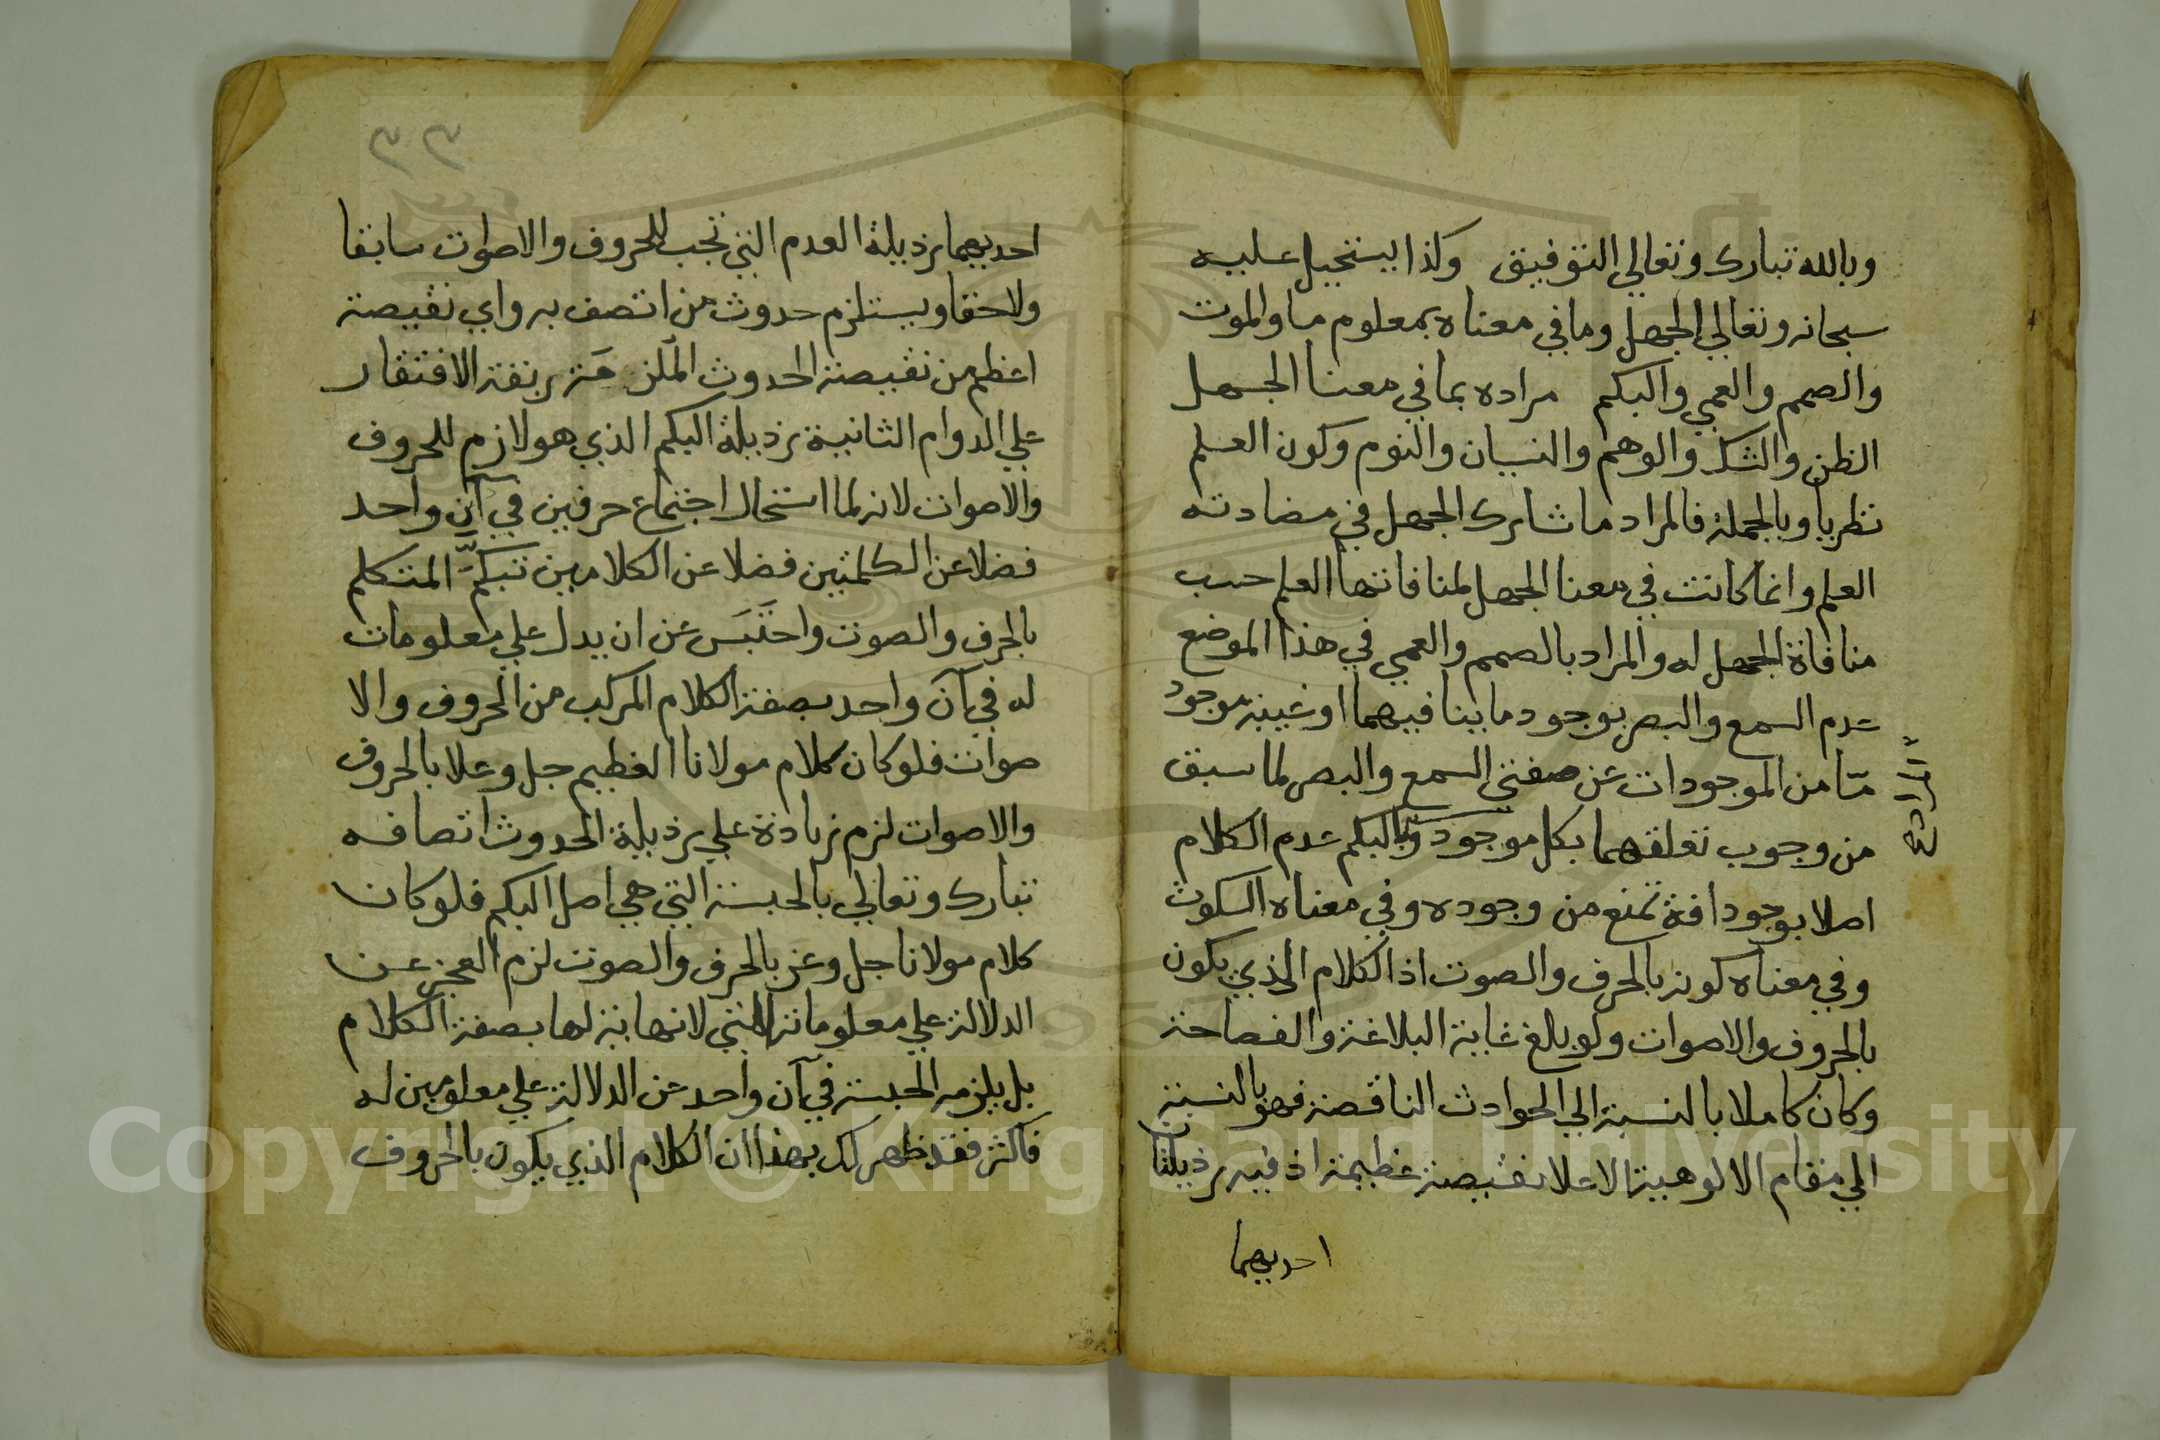 وبالله تبارك وتعالي التوفيق وكذا يستحيل عليه
سبحانه وتعالي الجهل وما في معناه بمعلوم ما والموت
والصمم والعمي والبكم مراده بما في معنا الجهل
الظن والشك والوهم والنسيان والنوم وكون العلم
نظريا وبالجملة فالمراد ما شارك الجهل في مضادته
العلم وانما كانت في معنا الجهل لمنافاتها العلم حسب
منافاة الجهل له والمراد بالصمم والعمي في هذا الموضع
عدم السمع والبصر بوجود ما ينافيهما او غيبة موجود
مّا من الموجودات عن صفتي السمع والبصر لما سبق
من وجوب تعلقهما بكل موجود وبالبكم عدم الكلام
اصلا بوجود افة تمنع من وجوده وفي معناه السكوت
وفي معناه كونه بالحرف والصوت اذ الكلام الذي يكون
بالحروف والاصوات ولو بلغ غاية البلاغة والفصاحة
وكان كاملا بالنسبة الي الحوادث الناقصة فهو بالنسبة
الي مقام الالوهية الاعلا نقيصة عظيمة اذ فيه رذيلتا
احديهما
احديهما رذيلة العدم التي تجب للحروف والاصوات سابقا
ولاحقا ويستلزم حدوث من اتصف به واي نقيصة
اعظم من نقيصة الحدوث الملزمة ربقة الافتقار
علي الدوام الثانية رذيلة البكم الذي هو لازم للحروف
والاصوات لانه لما استحال اجتماع حرفين في آن واحد
فضلا عن الكلمتين فضلا عن الكلامين تبكّم المتكلم
بالحرف والصوت واحتَبَسَ عن ان يدل علي معلومات
له في آن واحد بصفة الكلام المركب من الحروف والا
صوات فلو كان كلام مولانا العظيم جل وعلا بالحروف
والاصوات لزم زيادة علي رذيلة الحدوث اتصافه
تبارك وتعالي بالحبسة التي هي اصل البكم فلو كان
كلام مولانا جل وعز بالحرف والصوت لزم العجز عن
الدلالة علي معلوماته التي لا نهاية لها بصفة الكلام
بل يلزمه الحبسة في آن واحد عن الدلالة علي معلومين له
فاكثر فقد ظهر لك بهذا ان الكلام الذي يكون بالحروف
Copyright © King Saud University